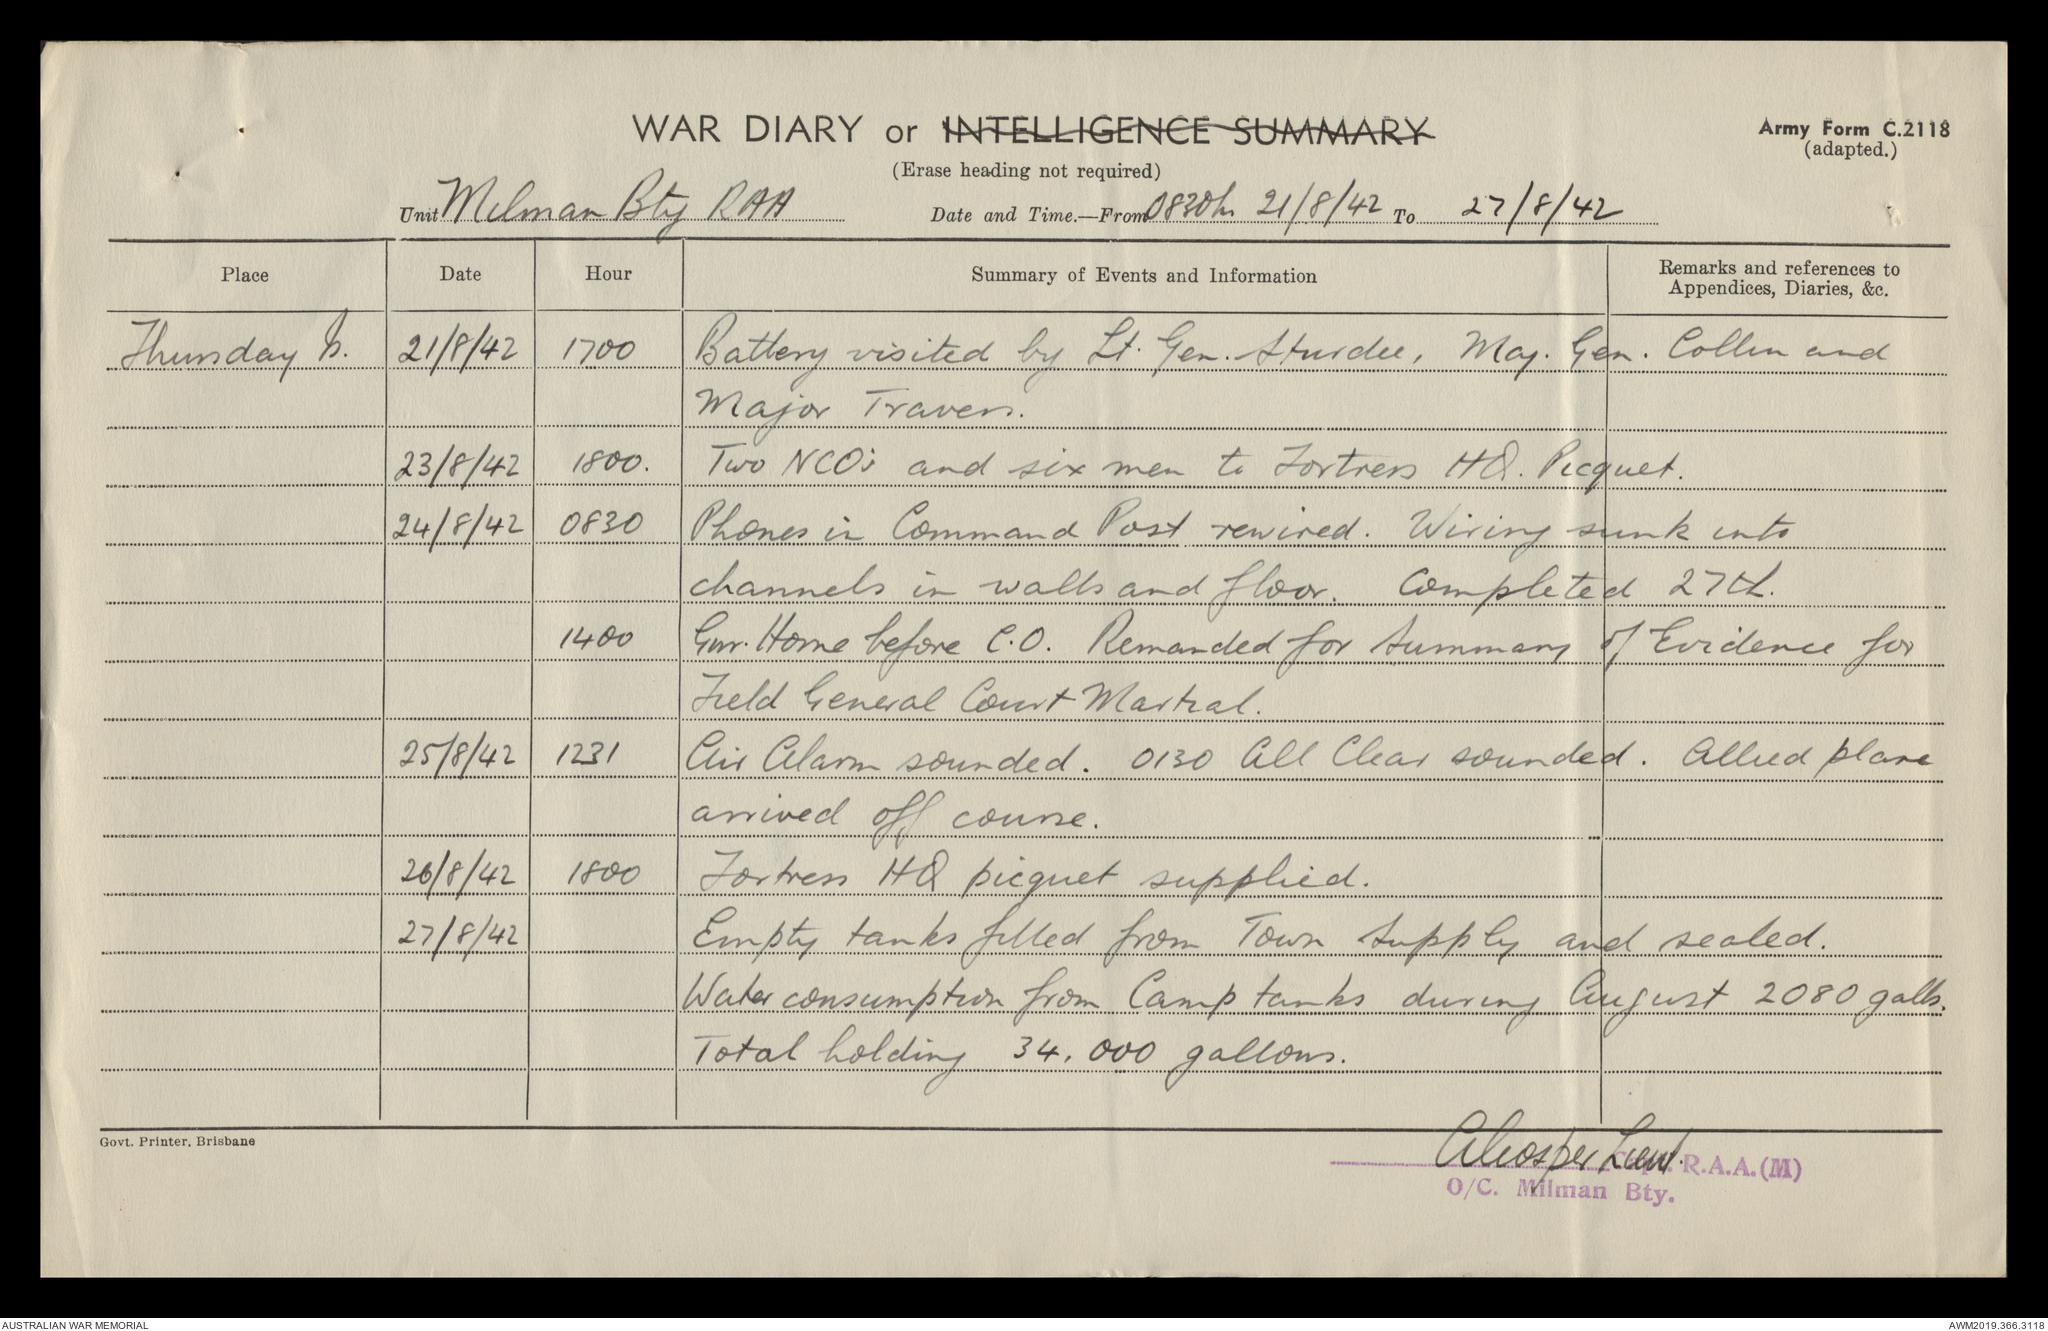 WAR DIARY or INTELLIGENCE SUMMARY
Army Form C.2118
(adapted.)
(Erase heading not required)
Unit Milman Bty RAA Date and Time.—From 0830h 21/8/42 To 27/8/42
Place Date Hour Summary of Events and Information Remarks and references to
Appendices, Diaries, &c.
Thursday Is. 21/8/42 1700 Battery visited by Lt. Gen. Sturdee, Maj. Gen. Collin and
Major Travers.
23/8/42 1800. Two NCOs and six men to Fortress HQ. Picquet.
24/8/42 0830 Phones in Command Post rewired. Wiring sunk into
channels in walls and floor. Completed 27th.
1400 Gnr. Horne before C.O. Remanded for Summary of Evidence for
Field General Court Martial.
25/8/42 1231 Air Alarm sounded. 0130 All Clear sounded. Allied plane
arrived off course.
26/8/42 1800 Fortress HQ picquet supplied.
27/8/42 Empty tanks filled from Town Supply and sealed.
Water consumption from Camp tanks during August 2080 galls.
Total holding 34,000 gallons.
Govt. Printer, Brisbane
Lieut. R.A.A.(M)
O/C. Milman Bty.
AUSTRALIAN WAR MEMORIAL
AWM2019.366.3118